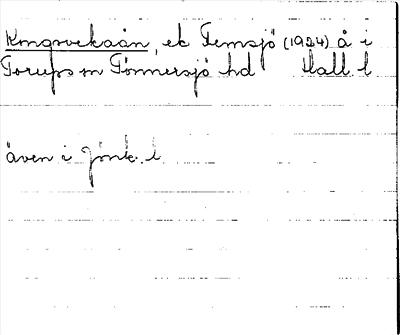 Kngsvekaån, ek Femsjö (1924) å i
Torups sn Tönnersjö hd Hall l
även i Jönk. l